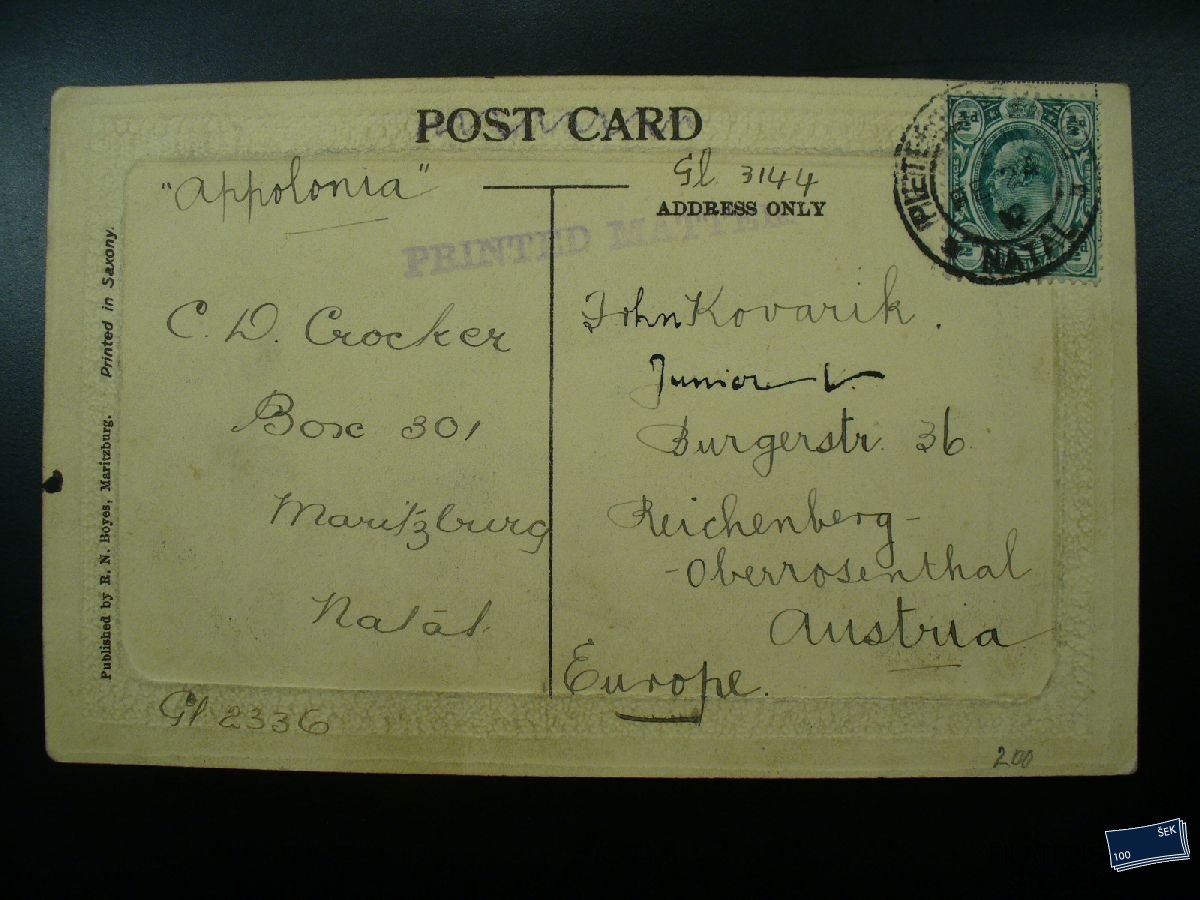 POST CARD
"Appolonia"
Gl. 3144
ADDRESS ONLY
PRINTED MATTER
C. D. Crocker
Box 301
Maritzburg
Natál.
Gl 2336
John Kovarik.
Junior
Burgerstr. 36
Reichenberg-
-Oberrosenthal
Austria
Europe.
200
Published by R. N. Boyes, Maritzburg. Printed in Saxony.
½d ½d
NATAL
100 ŠEK